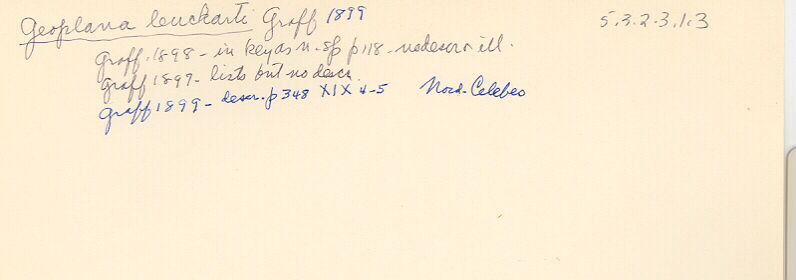 Geoplana leuckarti Graff 1899 5.3.2.3.1.3
Graff. 1898 - in key as n. sp p 118 - no descr or ill.
Graff 1897 - lists but no descr.
Graff 1899 - descr. p 348 XIX 4-5 Nord-Celebes